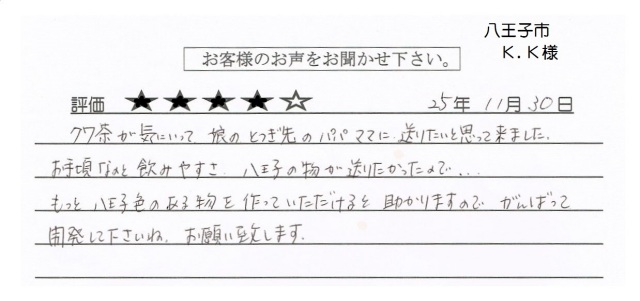 八王子市
K.K様
お客様のお声をお聞かせ下さい。
評価 ★★★★☆ 25年 11月 30日
クワ茶が気にいって 娘のとつぎ先のパパママに送りたいと思って来ました。
お手頃なのと飲みやすさ、八王子の物が送りたかったので...
もっと八王子色のある物を作っていただけると助かりますので がんばって
開発して下さいね。お願い致します。